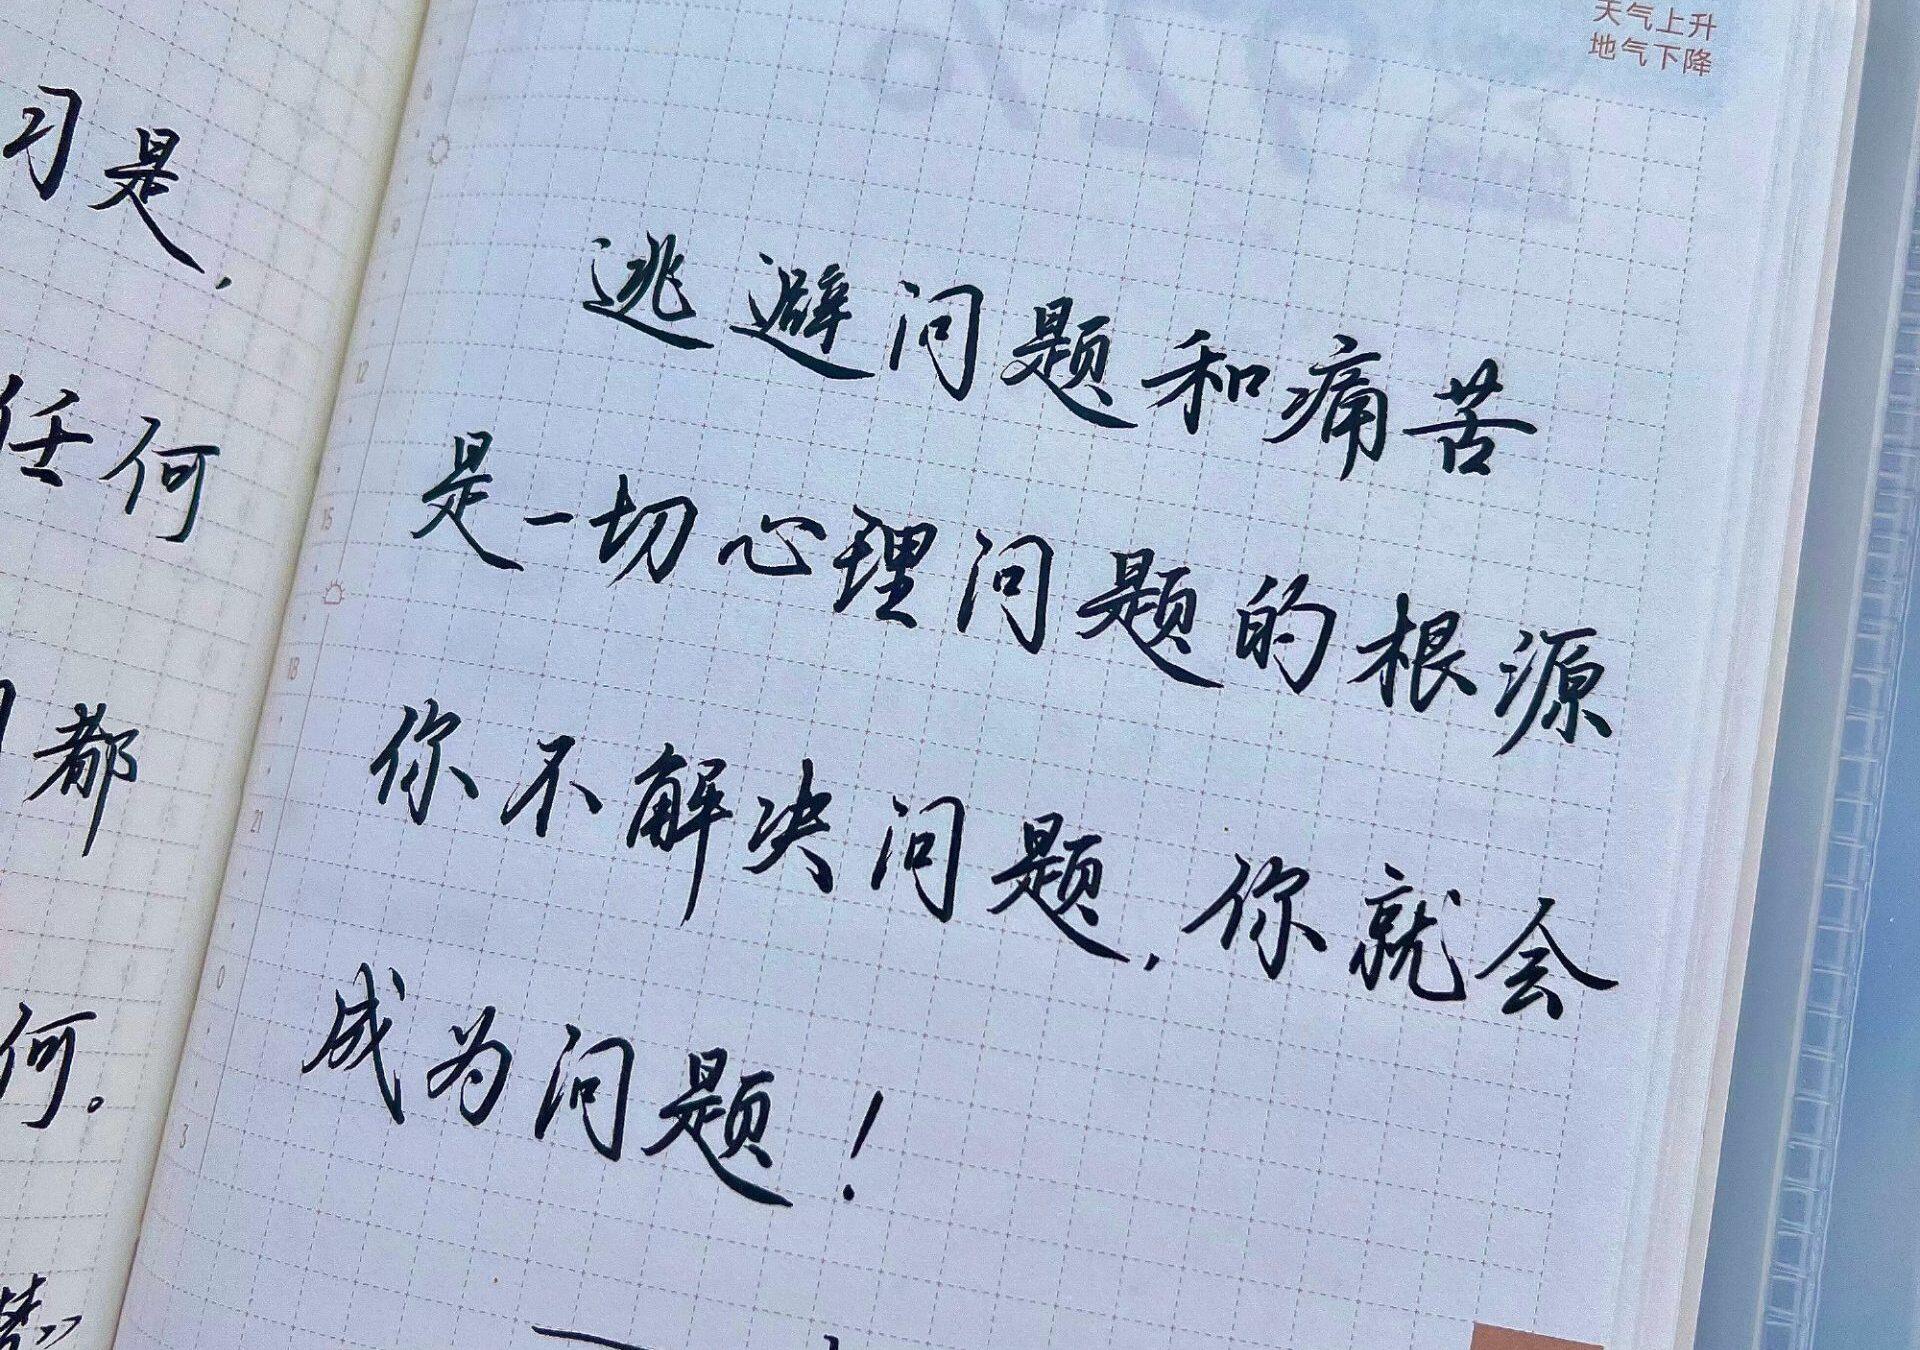 天气上升
地气下降
习是,
任何
都
何。
6
9
12
15
18
21
0
3
逃避问题和痛苦
是一切心理问题的根源
你不解决问题,你就会
成为问题!